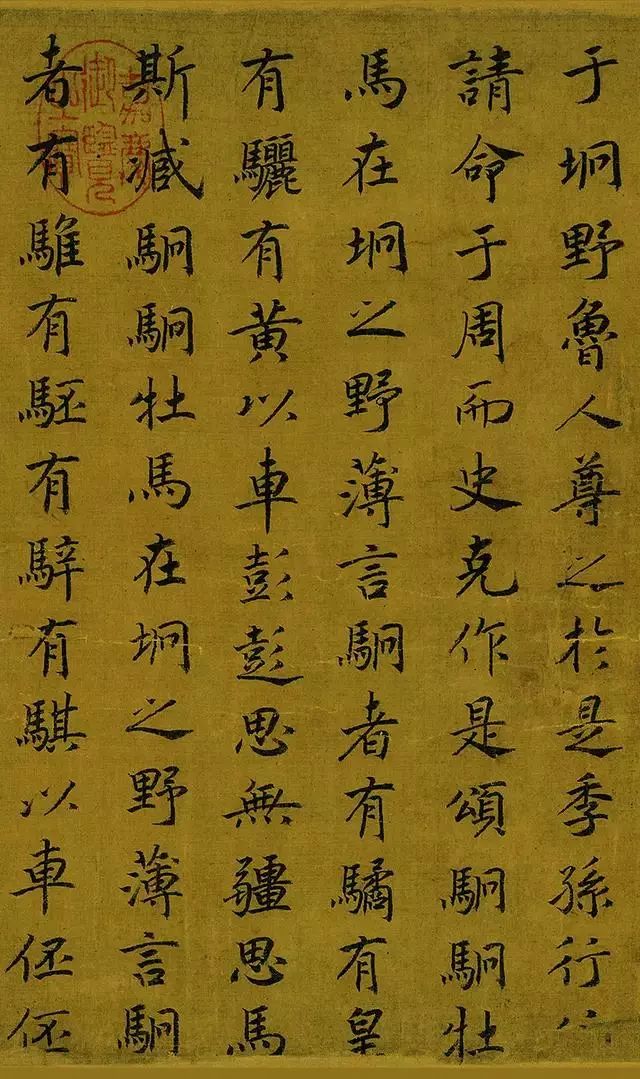 于坰野魯人尊之於是季孫行
請命于周而史克作是頌駉駉牡
馬在坰之野薄言駉者有驈有皇
有驪有黃以車彭彭思無疆思馬
斯臧駉駉牡馬在坰之野薄言駉
者有騅有駓有騂有騏以車伾伾
嘉慶
御覽
之寶